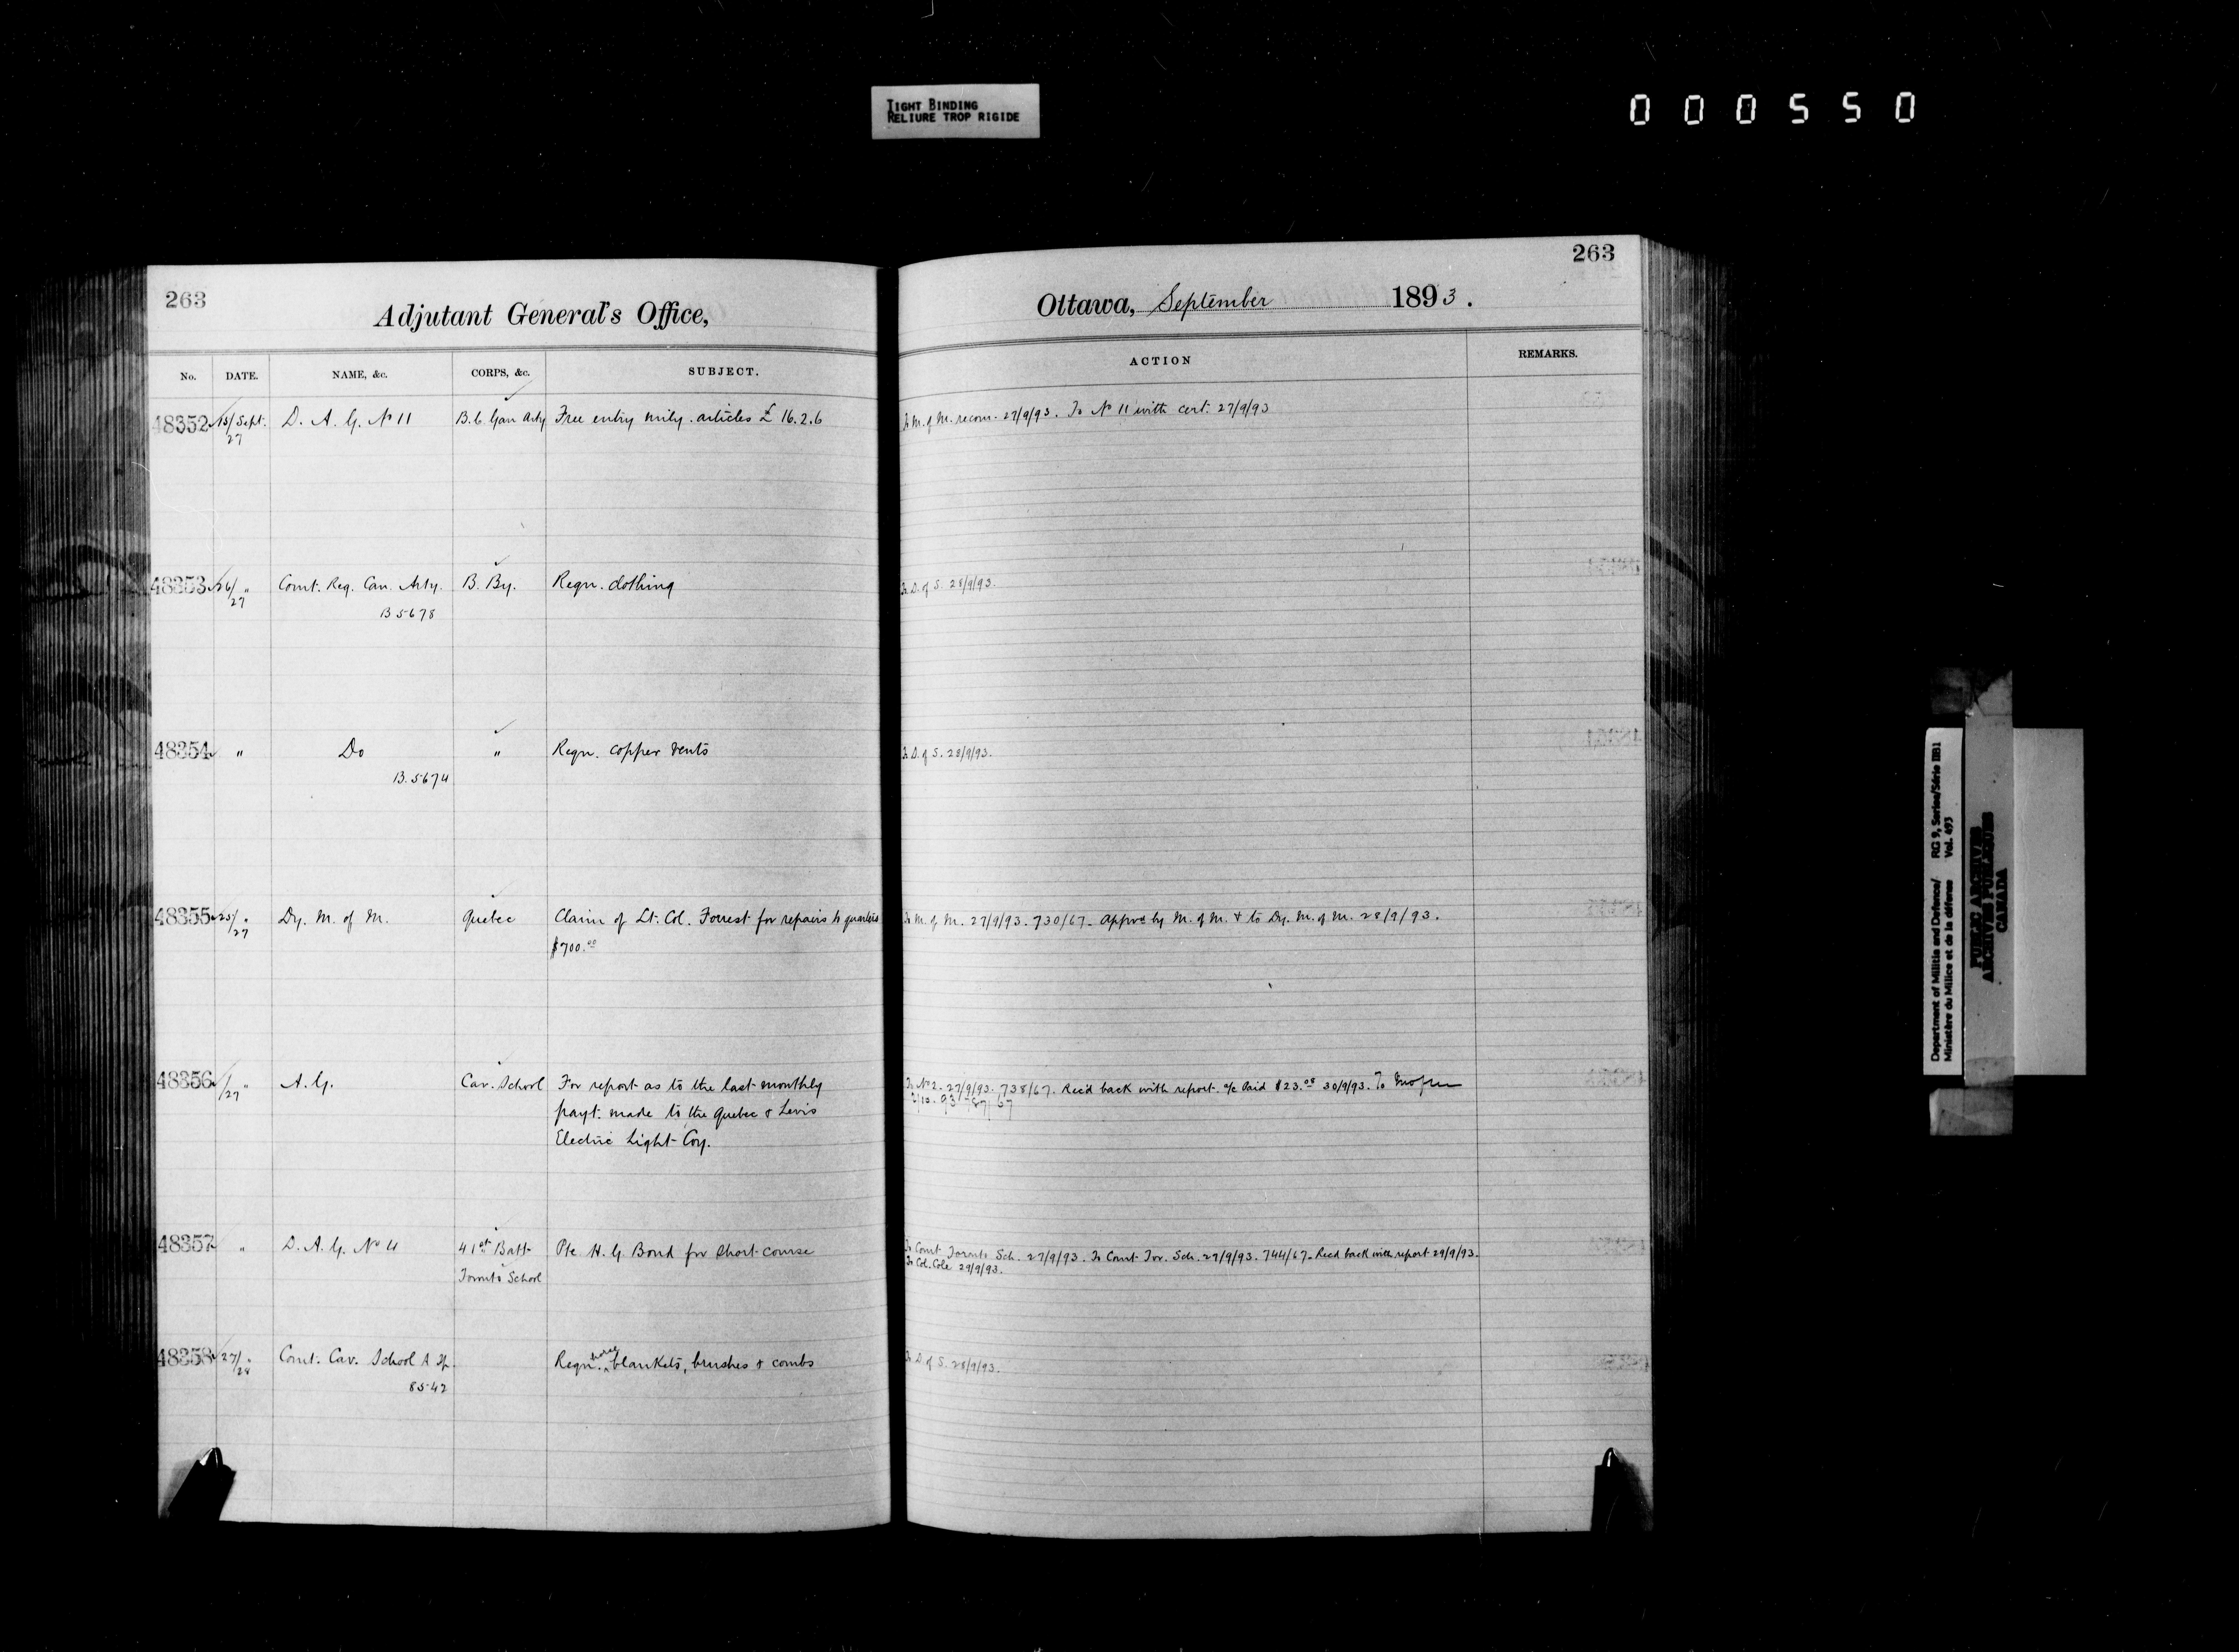 TIGHT BINDING
RELIURE TROP RIGIDE
000550
263
Adjutant General's Office,
No. DATE. NAME, &c. CORPS, &c. SUBJECT.
48352 15/Sept. 27 D. A. G. No 11 B.C. Gan Arty Free entry mily. articles £ 16.2.6
48353 26/ " 27 Comt. Reg. Can. Arty. B. By. Reqn. clothing
B 5678
48354 " Do " Reqn. copper vents
B. 5674
48355 25/ " 27 Dy. M. of M. Quebec Claim of Lt. Col. Forrest for repairs to quarters
$700.00
48356 /27 " A. G. Cav. School For report as to the last monthly
payt. made to the Quebec & Levis
Electric Light Coy.
48357 " D. A. G. No 4 41st Batt Pte H. G. Bond for short course
Toronto School
48358 27/ " 28 Comt. Cav. School Reqn. horse blankets, brushes & combs
8542
263
Ottawa, September 1893.
ACTION REMARKS.
To M. of M. recom. 27/9/93. To No 11 with cert. 27/9/93
To D. of S. 28/9/93.
To D. of S. 28/9/93.
To M. of M. 27/9/93. 730/67. Appvd by M. of M. & to Dy. M. of M. 28/9/93.
To No 2. 27/9/93. 738/67. Recd back with report. a/c Paid $23.08 30/9/93. To
To Comt Toronto Sch. 27/9/93. To Comt Tor. Sch. 27/9/93. 744/67. Recd back with report 29/9/93.
To Col. Cole 29/9/93.
To D. of S. 28/9/93.
Department of Militia and Defence/ RG 9, Series/Série IIB1
Ministère du Milice et de la défense Vol. 493
PUBLIC ARCHIVES
ARCHIVES PUBLIQUES
CANADA